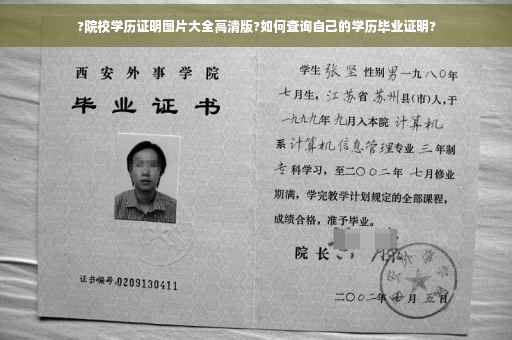 ?院校学历证明图片大全高清版?如何查询自己的学历毕业证明?
西安外事学院
毕业证书
证书编号:0209130411
学生 张坚 性别男一九八〇年
七月生，江苏省苏州县(市)人,于
一九九九年九月入本院 计算机
系 计算机信息管理专业 三年制
专科学习，至二〇〇二年 七月修业
期满，学完教学计划规定的全部课程,
成绩合格，准予毕业。
院长
二〇〇二年 月五日